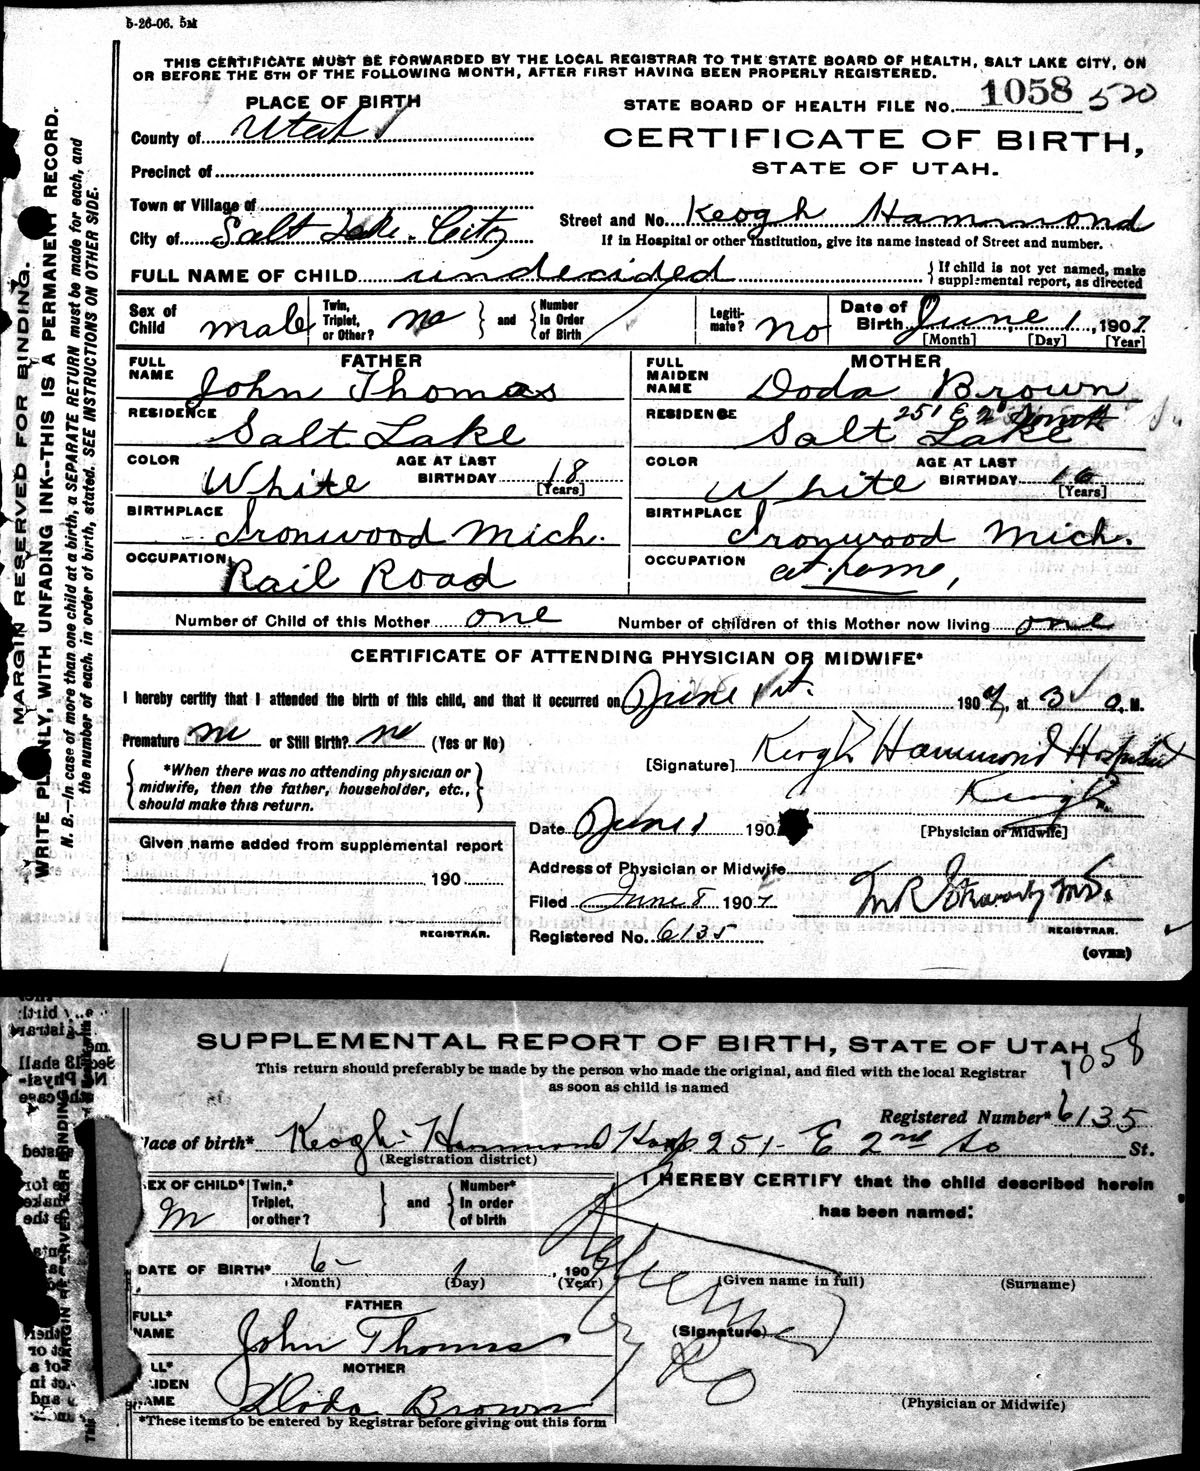 5-26-06. 5M
THIS CERTIFICATE MUST BE FORWARDED BY THE LOCAL REGISTRAR TO THE STATE BOARD OF HEALTH, SALT LAKE CITY, ON
OR BEFORE THE 5TH OF THE FOLLOWING MONTH, AFTER FIRST HAVING BEEN PROPERLY REGISTERED.
MARGIN RESERVED FOR BINDING.
WRITE PLAINLY, WITH UNFADING INK--THIS IS A PERMANENT RECORD.
N. B.—In case of more than one child at a birth, a SEPARATE RETURN must be made for each, and
the number of each, in order of birth, stated. SEE INSTRUCTIONS ON OTHER SIDE.
PLACE OF BIRTH
STATE BOARD OF HEALTH FILE No. 1058 520
County of Utah
CERTIFICATE OF BIRTH,
STATE OF UTAH.
Precinct of
Town or Village of
Street and No. Keogh Hammond
City of Salt Lake City
If in Hospital or other Institution, give its name instead of Street and number.
FULL NAME OF CHILD undecided { If child is not yet named, make
supplemental report, as directed
Sex of Child male Twin, Triplet, or Other? no } and { Number In Order of Birth / Legiti-mate? no Date of Birth June 1, 1907
[Month] [Day] [Year]
FATHER MOTHER
FULL NAME John Thomas FULL MAIDEN NAME Doda Brown
RESIDENCE Salt Lake RESIDENCE 251 E 2nd South Salt Lake
COLOR White AGE AT LAST BIRTHDAY 18 [Years] COLOR White AGE AT LAST BIRTHDAY 16 [Years]
BIRTHPLACE Ironwood Mich. BIRTHPLACE Ironwood Mich.
OCCUPATION Rail Road OCCUPATION at home,
Number of Child of this Mother one Number of children of this Mother now living one
CERTIFICATE OF ATTENDING PHYSICIAN OR MIDWIFE*
I hereby certify that I attended the birth of this child, and that it occurred on June 1st. 1907, at 3 a. M.
Premature no or Still Birth? no (Yes or No)
[Signature] Keogh Hammond Hospital
Keogh
{ *When there was no attending physician or
midwife, then the father, householder, etc.,
should make this return. }
Date June 1 190 [Physician or Midwife]
Given name added from supplemental report
190
REGISTRAR.
Address of Physician or Midwife
Filed June 8 1907 M.D.
REGISTRAR.
Registered No. 6135
(OVER)
SUPPLEMENTAL REPORT OF BIRTH, STATE OF UTAH
1058
This return should preferably be made by the person who made the original, and filed with the local Registrar
as soon as child is named
Registered Number* 6135
lace of birth* Keogh-Hammond Hosp 251- E 2nd So St.
(Registration district)
SEX OF CHILD* M Twin,* Triplet, or other? } and { Number* In order of birth
I HEREBY CERTIFY that the child described herein
has been named:
DATE OF BIRTH* 6- 1 , 190
(Month) (Day) (Year)
(Given name in full) (Surname)
FATHER
FULL* NAME John Thomas
(Signature)
MOTHER
LL* IDEN AME Doda Brown
(Physician or Midwife)
*These items to be entered by Registrar before giving out this form